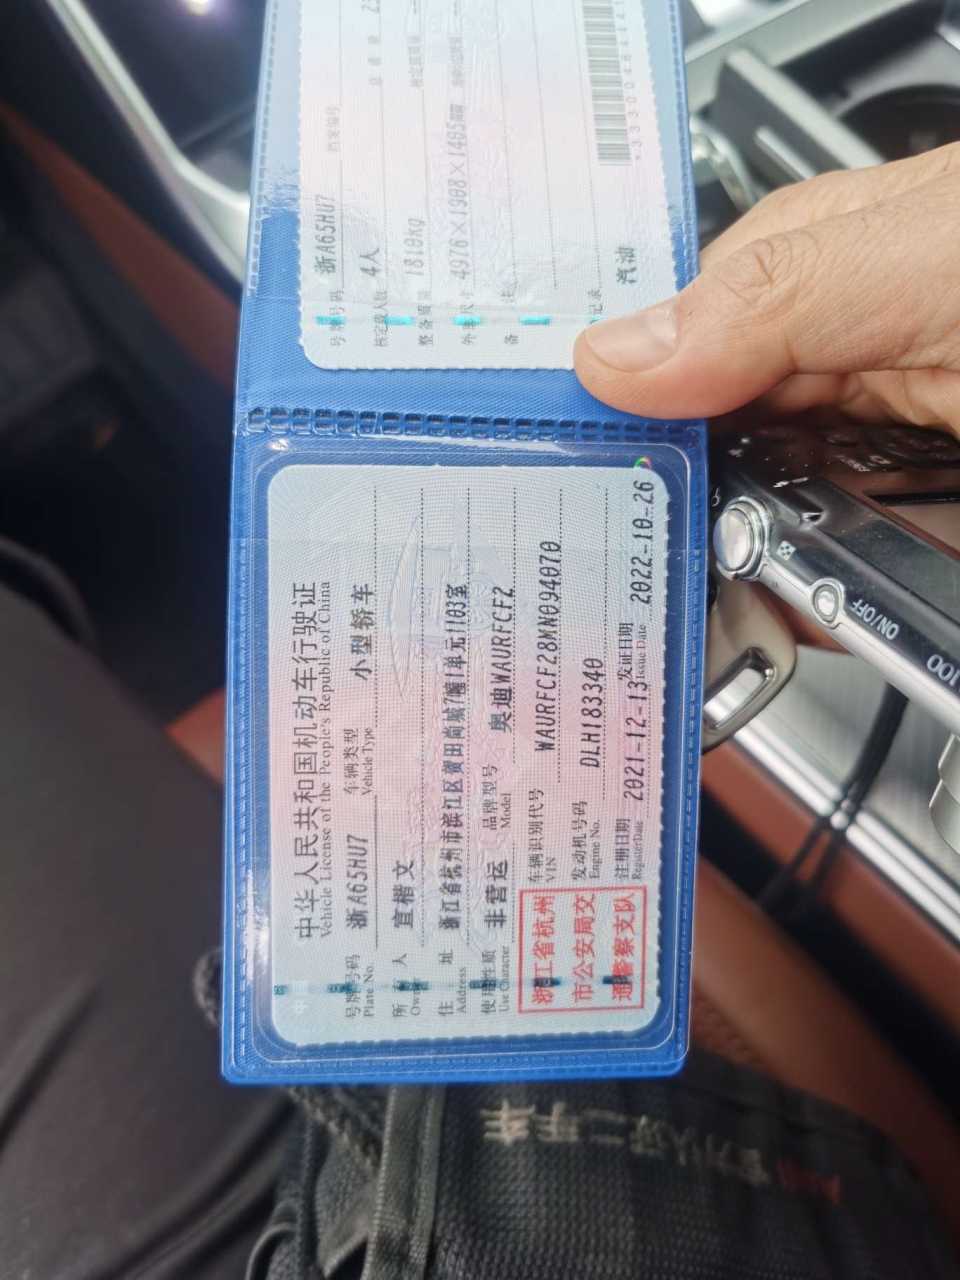 中华人民共和国机动车行驶证
Vehicle License of the People's Republic of China
号牌号码 浙A65HU7 车辆类型 小型轿车
Plate No. Vehicle Type
所有人 宣楷文
Owner
住址 浙江省杭州市滨江区贺田尚城7幢1单元1103室
Address
使用性质 非营运 品牌型号 奥迪WAURFCF2
Use Character Model
浙江省杭州
市公安局交
通警察支队
车辆识别代号 WAURFCF28MN094070
VIN
发动机号码 DLH183340
Engine No.
注册日期 2021-12-13 发证日期 2022-10-26
Register Date Issue Date
号牌号码 浙A65HU7 档案编号
核定载人数 4人 总质量
整备质量 1810kg 核定载质量
外廓尺寸 4976×1908×1405mm
备注
记录 汽油
ON/OFF
100
二手车